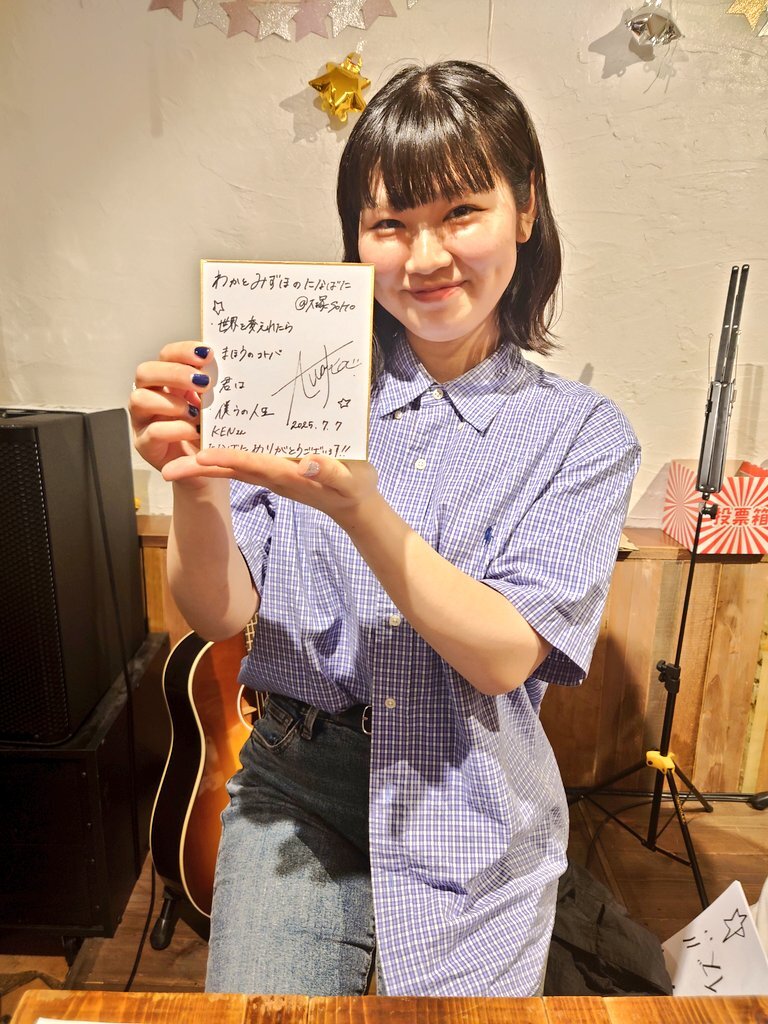 わかとみずほのたなばた
@大塚Soito
☆
・世界を変えれたら
・まほうのコトバ
・君は
・僕らの人生
KENZU
2025.7.7
たなばたありがとうございます!!
投票箱